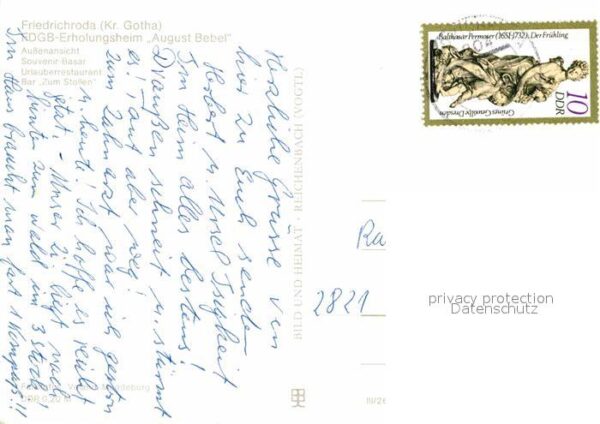 Friedrichroda (Kr. Gotha)
FDGB-Erholungsheim „August Bebel"
Außenansicht
Souvenir-Basar
Urlauberrestaurant
Bar „Zum Stollen"
Herzliche Grüsse von
hier zu Euch senden
Herbert u. Ursel
Im Heim alles bestens!
Draußen schneit u. stürmt
es, taut aber weg!
Zum Zahnarzt war ich gestern
u. heute! Ich hoffe es reicht
jetzt. - Unser Zi. liegt nach
hinten zum Wald im 3. Stock,
Im Haus braucht man fast 1 Kompass!!
DDR 0,20 M
BILD UND HEIMAT · REICHENBACH (VOGTL)
III/26
Balthasar Permoser (1651-1732), Der Frühling
10
DDR
Grünes Gewölbe Dresden
2821
privacy protection
Datenschutz